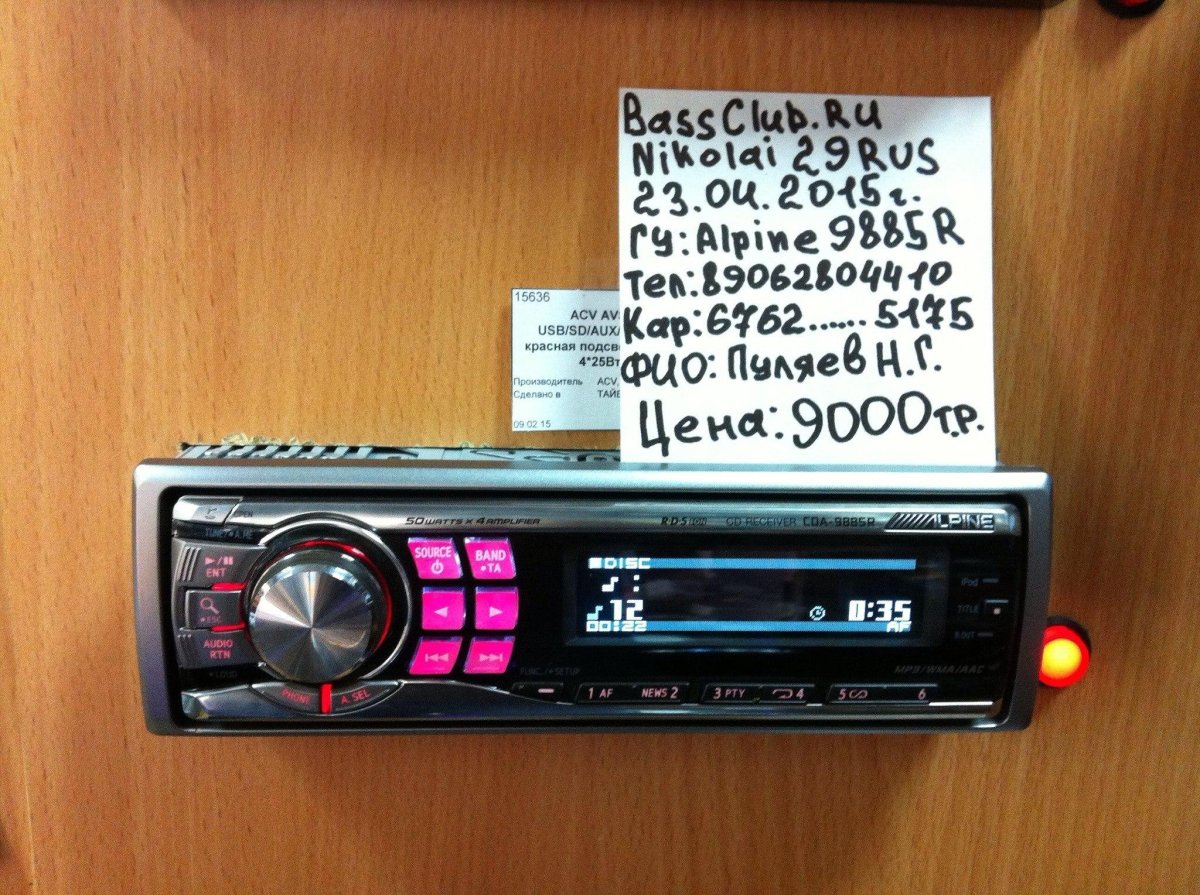 BassClub.RU
Nikolai 29RUS
23.04.2015г.
ГУ: Alpine 9885R
Тел: 89062804410
Кар: 6762......5175
ФИО: Пуляев Н.Г.
Цена: 9000 т.р.
15636
ACV AV
USB/SD/AUX/
красная подсв
4*25Вт
Производитель ACV,
Сделано в ТАЙ
09.02.15
50 WATTS X 4 AMPLIFIER
R·D·S
CD RECEIVER CDA-9885R
ALPINE
ENT
ESC
AUDIO
RTN
LOUD
PHONE
A.SEL
SOURCE
BAND
TA
DISC
12
0:35
00:22
AF
iPod
TITLE
MP3/WMA/AAC
FUNC./SETUP
1 AF
NEWS 2
3 PTY
4
5
6